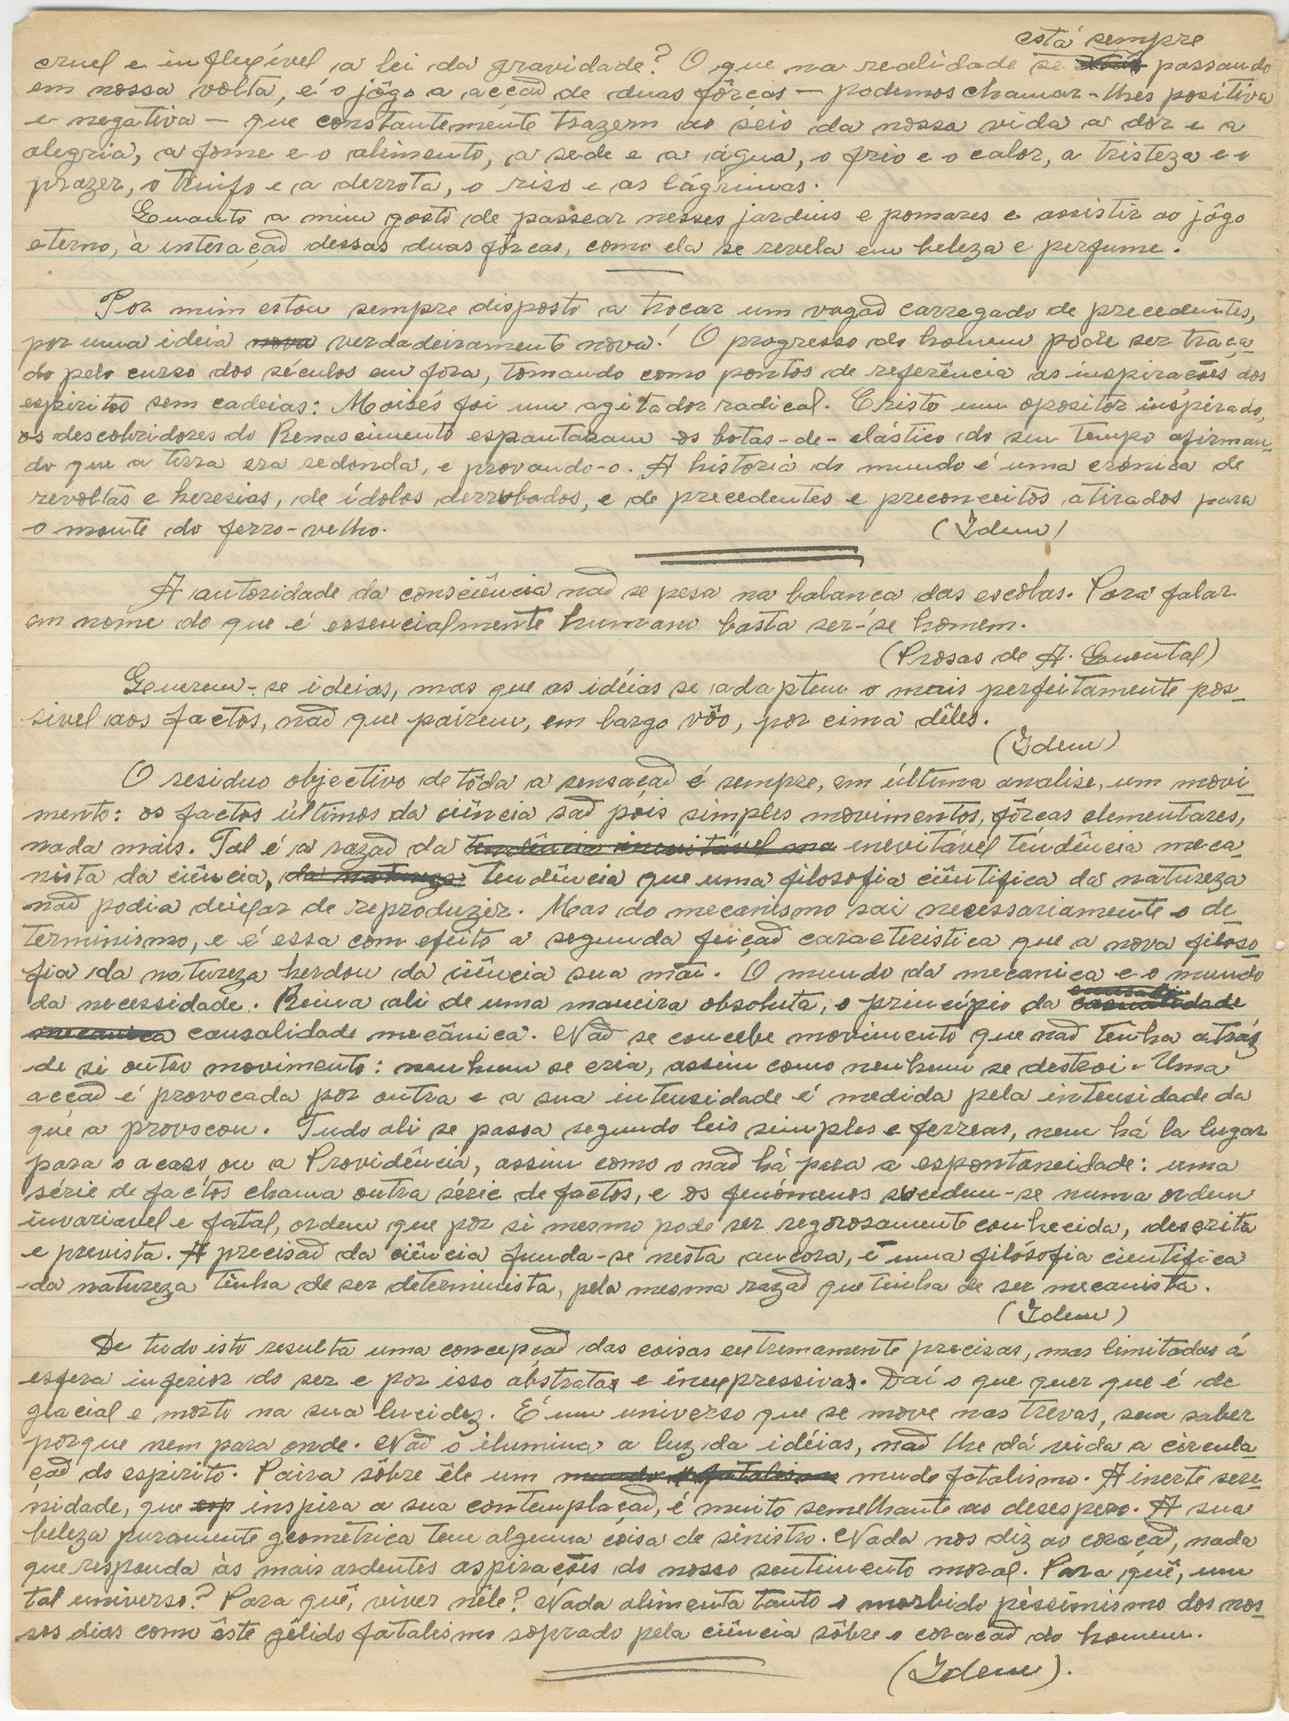 está sempre
cruel e inflexível a lei da gravidade? O que na realidade se passando
em nossa volta, é o jôgo a acção de duas fôrças — podemos chamar-lhes positiva
e negativa — que constantemente trazem ao seio da nossa vida a dôr e a
alegria, a fome e o alimento, a sede e a água, o frio e o calor, a tristeza e o
prazer, o triufo e a derrota, o riso e as lágrimas.
Quanto a mim gosto de passear nesses jardins e pomares e assistir ao jôgo
eterno, à interação dessas duas fôrças, como ela se revela em beleza e perfume.
Por mim estou sempre disposto a trocar um vagão carregado de precedentes,
por uma ideia nova verdadeiramente nova! O progresso do homem pode ser traça-
do pelo curso dos séculos em fora, tomando como pontos de referência as inspirações dos
espiritos sem cadeias: Moisés foi um agitador radical. Cristo um opositor inspirado,
os descobridores do Renascimento espantaram os botas-de-elástico do seu tempo afirman-
do que a terra era redonda, e provando-o. A historia do mundo é uma crónica de
revoltas e heresias, de ídolos derrubados, e de precedentes e preconceitos atirados para
o monte do ferro-velho. (Idem)
A autoridade da consciência não se pesa na balança das escolas. Para falar
em nome do que é essencialmente humano basta ser-se homem.
(Prosas de A. Quental)
Generem-se ideias, mas que as idéias se adaptem o mais perfeitamente pos-
sivel aos factos, não que pairem, em largo vôo, por cima dêles.
(Idem)
O residuo objectivo de tôda a sensação é sempre, em última analise, um movi-
mento: os factos últimos da ciência são pois simples movimentos, fôrças elementares,
nada mais. Tal é a razão da tendência inevitável na inevitável tendência meca-
nista da ciência, da natureza tendência que uma filosofia ciêntifica da natureza
não podia deixar de reproduzir. Mas do mecanismo sai necessariamente o de-
terminismo, e é essa com efeito a segunda feição caracteristica que a nova filoso-
fia da natureza herdou da ciência sua mãi. O mundo da mecanica e o mundo
da necessidade. Reina ali de uma maneira absoluta, o princípio da casualidade
mecanica causalidade mecânica. Não se concebe movimento que não tenha atrás
de si outro movimento: nenhum se cria, assim como nenhum se destroi. Uma
acção é provocada por outra e a sua intensidade é medida pela intensidade da
que a provocou. Tudo ali se passa segundo leis simples e ferreas, nem há la lugar
para o acaso ou a Providência, assim como o não há para a espontaneidade: uma
série de factos chama outra série de factos, e os fenómenos sucedem-se numa ordem
invariavel e fatal, ordem que por si mesmo pode ser regorosamente conhecida, descrita
e prevista. A precisão da ciência funda-se nesta ancora, e uma filósofia cientifica
da natureza tinha de ser determinista, pela mesma razão que tinha de ser mecanista.
(Idem)
De tudo isto resulta uma concepção das coisas extremamente precisas, mas limitadas á
esfera inferior do ser e por isso abstratas e inexpressivas. Daí o que quer que é de
glacial e morto na sua lucidez. É um universo que se move nas trevas, sem saber
porque nem para onde. Não o ilumina a luz da idéias, não lhe dá vida a circula-
ção do espirito. Paira sôbre êle um mundo fatalismo mudo fatalismo. A inerte sere-
nidade, que esp inspira a sua contemplação, é muito semelhante ao desespero. A sua
beleza puramente geometrica tem alguma cóisa de sinistro. Nada nos diz ao coração, nada
que responda às mais ardentes aspirações do nosso sentimento moral. Para quê, um
tal universo? Para quê, viver nêle? Nada alimenta tanto o morbido péssimismo dos nos-
sos dias como êste gêlido fatalismo soprado pela ciência sôbre o coração do homem.
(Idem).